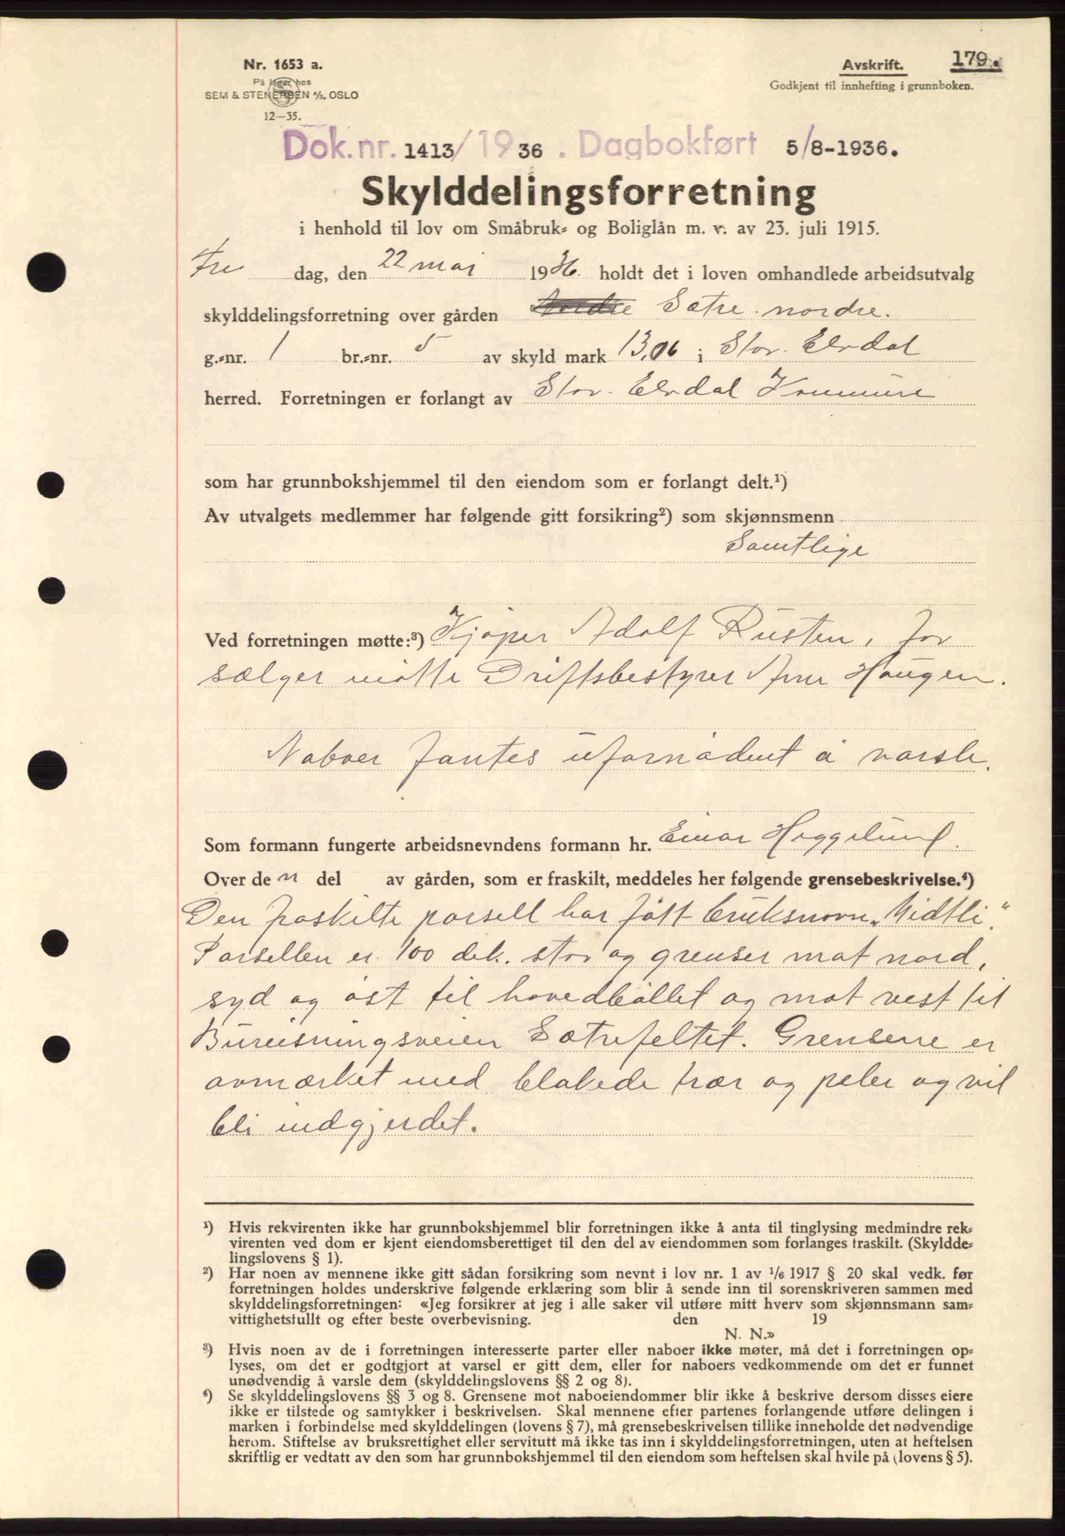 Nr. 1653 a.
På lager hos
SEM & STENERSEN A/S, OSLO
12—35.
Avskrift. 179.
Godkjent til innhefting i grunnboken.
Dok.nr. 1413/1936. Dagbokført 5/8-1936.
Skylddelingsforretning
i henhold til lov om Småbruk- og Boliglån m. v. av 23. juli 1915.
Fre dag, den 22 mai 1936. holdt det i loven omhandlede arbeidsutvalg
skylddelingsforretning over gården Nordre Sætre nordre.
g.-nr. 1 br.-nr. 5 av skyld mark 13,06 i Stor-Elvdal
herred. Forretningen er forlangt av Stor-Elvdal Kommune
som har grunnbokshjemmel til den eiendom som er forlangt delt.¹)
Av utvalgets medlemmer har følgende gitt forsikring²) som skjønnsmenn
Samtlige
Ved forretningen møtte:³) Kjøper Adolf Rusten, for
sælger møtte Driftsbestyrer Arne Haugen.
Naboer fantes ufornødent å varsle.
Som formann fungerte arbeidsnevndens formann hr. Einar Heggelund.
Over den del av gården, som er fraskilt, meddeles her følgende grensebeskrivelse.⁴)
Den fraskilte parsell har fått bruksnavn „Midtli".
Parsellen er 100 dek. stor og grenser mot nord,
syd og øst til hovedbøllet og mot vest til
Bureisningsveien Sætrefeltet. Grensene er
avmærket med blekede trær og peler og vil
bli indgjerdet.
¹) Hvis rekvirenten ikke har grunnbokshjemmel blir forretningen ikke å anta til tinglysing medmindre rek-
virenten ved dom er kjent eiendomsberettiget til den del av eiendommen som forlanges fraskilt. (Skyldde-
lingslovens § 1).
²) Har noen av mennene ikke gitt sådan forsikring som nevnt i lov nr. 1 av 1/6 1917 § 20 skal vedk. før
forretningen holdes underskrive følgende erklæring som blir å sende inn til sorenskriveren sammen med
skylddelingsforretningen: «Jeg forsikrer at jeg i alle saker vil utføre mitt hverv som skjønnsmann sam-
vittighetsfullt og efter beste overbevisning. den 19
N. N.»
³) Hvis noen av de i forretningen interesserte parter eller naboer ikke møter, må det i forretningen op-
lyses, om det er godtgjort at varsel er gitt dem, eller for naboers vedkommende om det er funnet
unødvendig å varsle dem (skylddelingslovens §§ 2 og 8).
⁴) Se skylddelingslovens §§ 3 og 8. Grensene mot naboeiendommer blir ikke å beskrive dersom disses eiere
ikke er tilstede og samtykker i beskrivelsen. Skal mennene efter partenes forlangende utføre delingen i
marken i forbindelse med skylddelingen (lovens § 7), må grensebeskrivelsen tillike inneholde det nødvendige
herom. Stiftelse av bruksrettighet eller servitutt må ikke tas inn i skylddelingsforretningen, uten at heftelsen
skriftlig er vedtatt av den som har grunnbokshjemmel til den eiendom som heftelsen skal hvile på (lovens § 5).